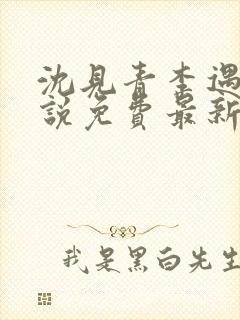 沈见青李遇
説免費最新
我是黑白先生